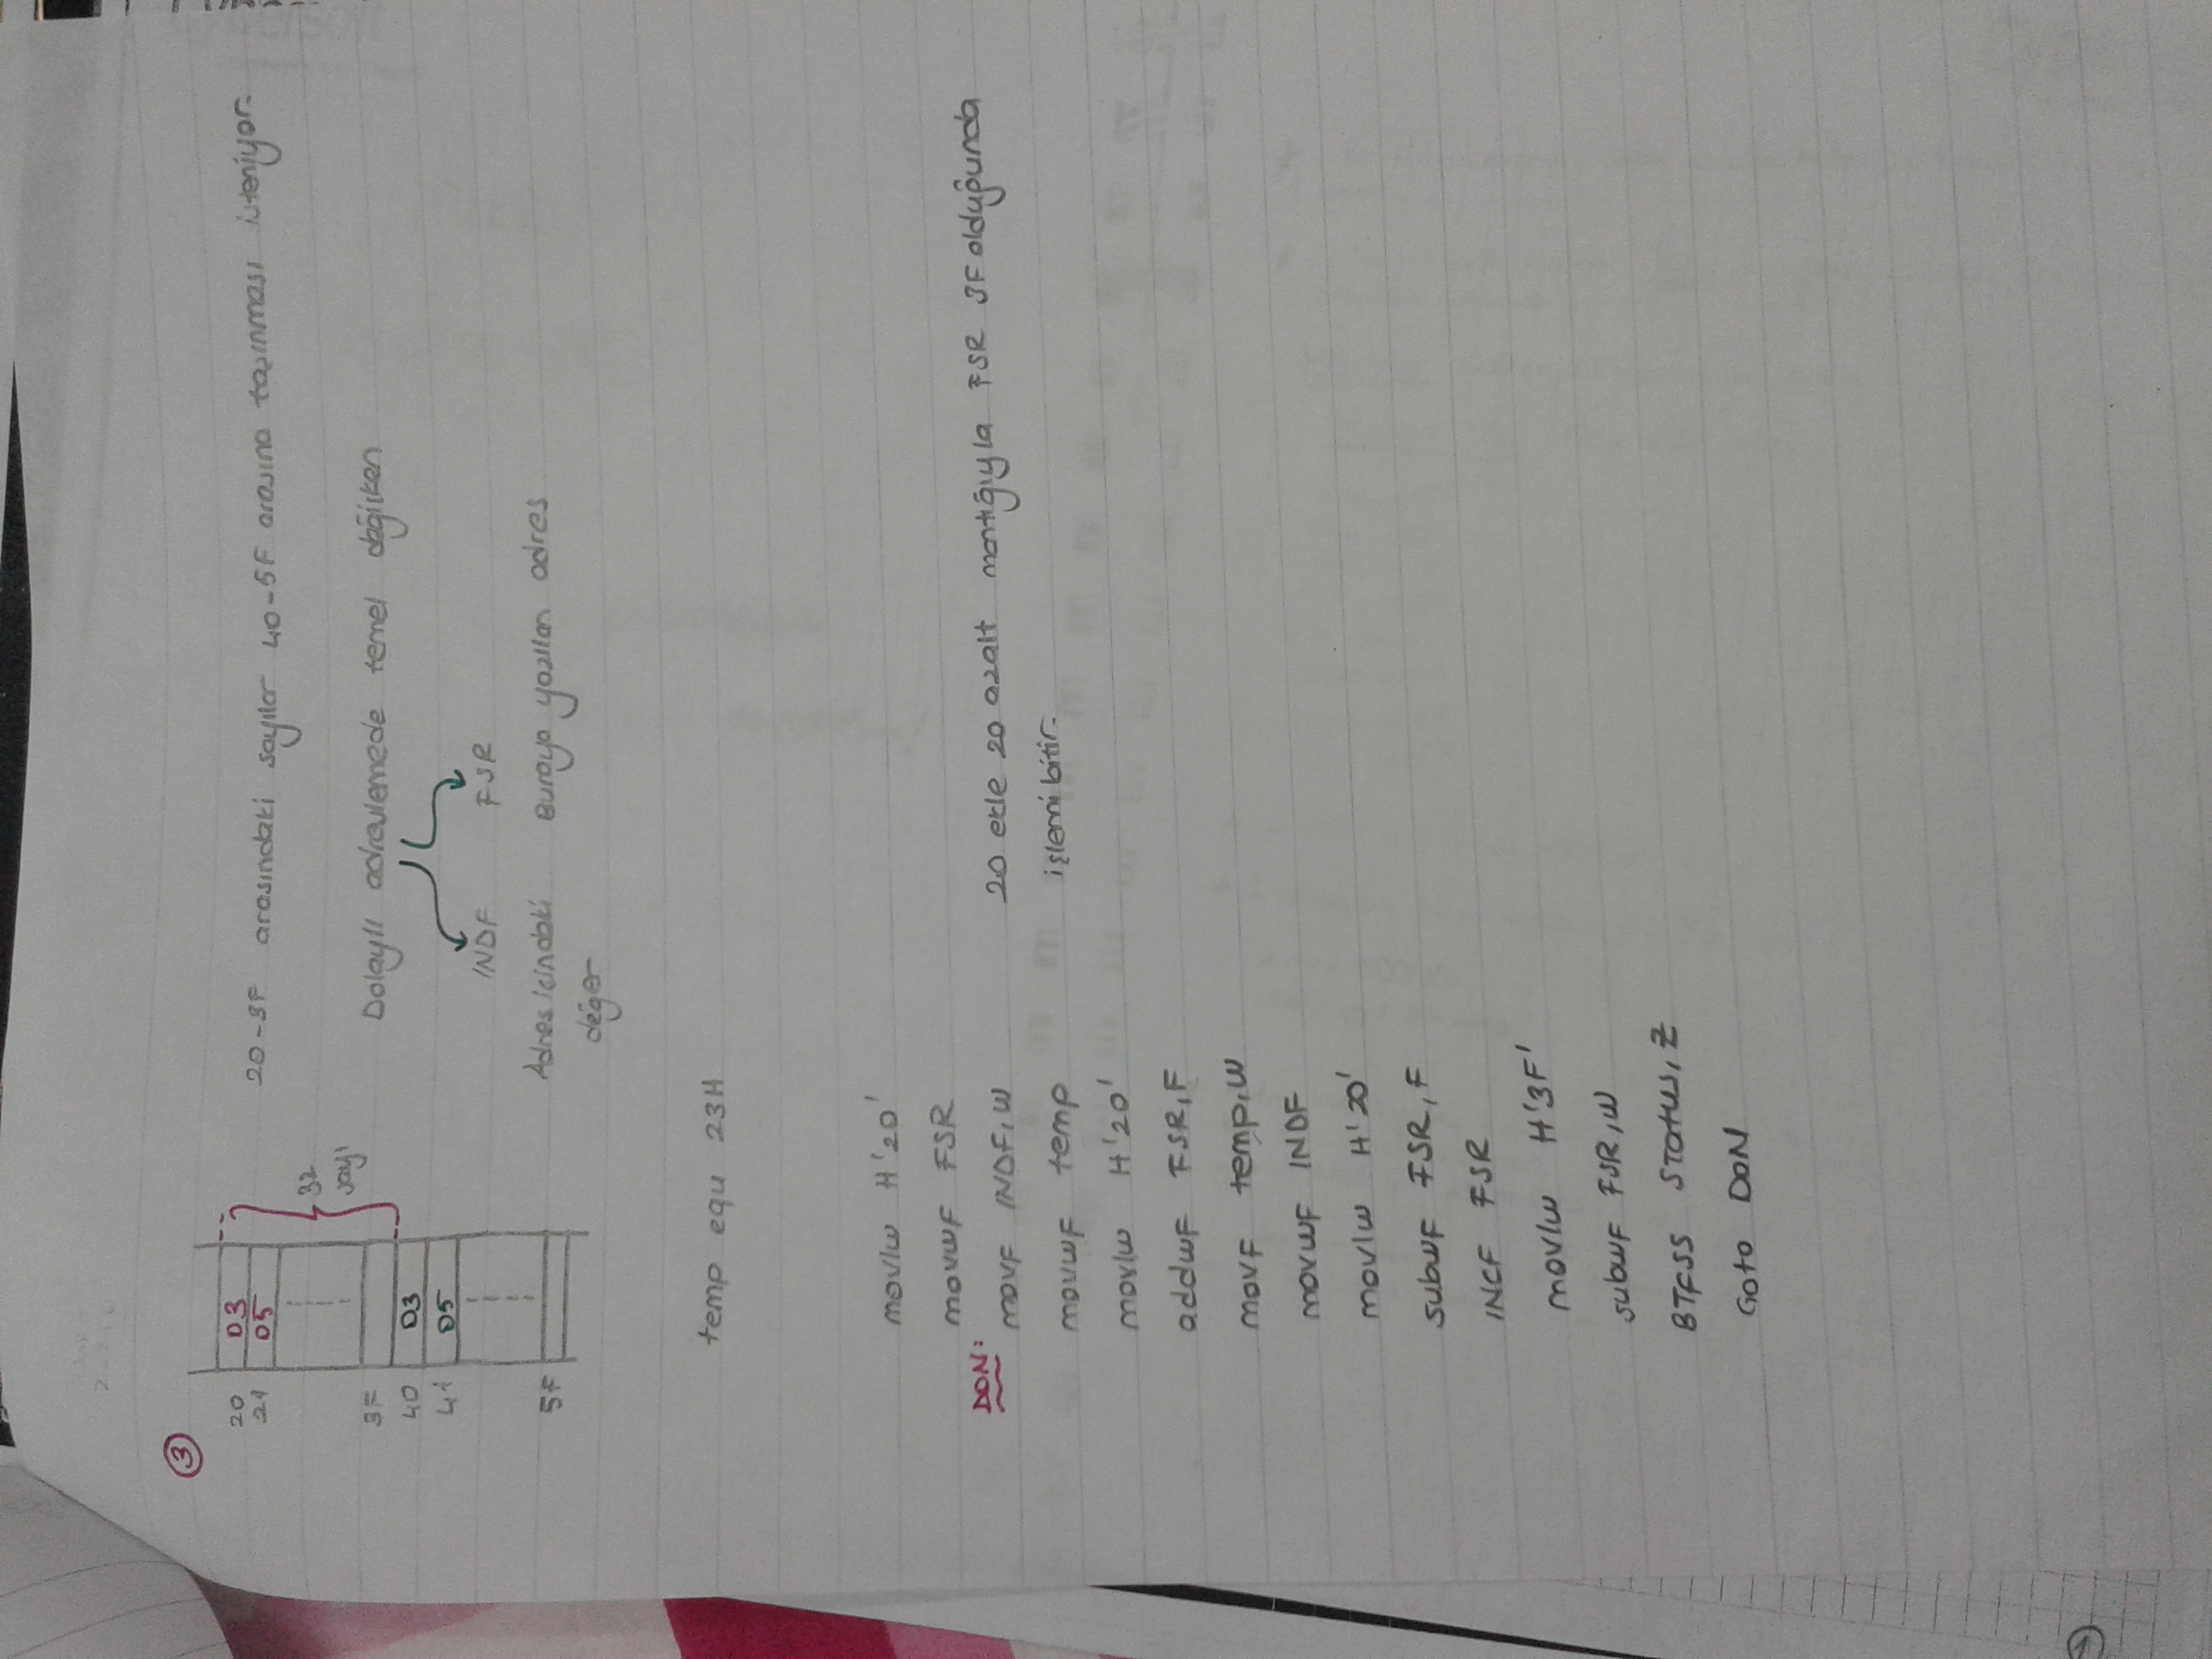 3
20 D3
21 D5
32
sayı
3F
40 D3
41 D5
5F
20-3F arasındaki sayılar 40-5F arasına taşınması isteniyor.
Dolaylı adreslemede temel değişken
INDF FSR
Adres içindeki Buraya yazılan adres
değer
temp equ 23H
movlw H'20'
movwF FSR
DON:
movF INDF,W
movwF temp
movlw H'20'
addwF FSR,F
movF temp,W
movwF INDF
movlw H'20'
subwF FSR,F
INCF FSR
movlw H'3F'
subwF FSR,W
BTFSS Status,Z
Goto DON
20 ekle 20 azalt mantığıyla FSR 3F olduğunda
işlemi bitir.